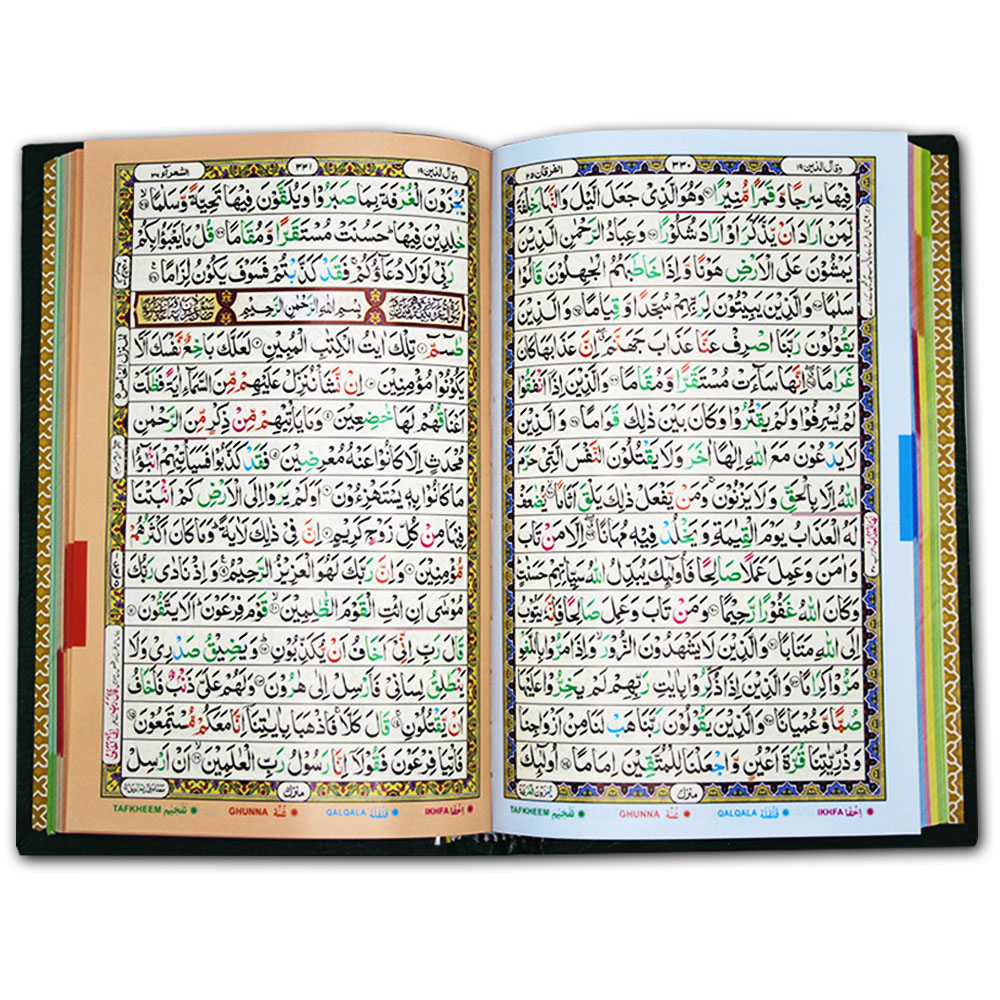 وقال الذین ۱۹
۳۳۰
الفرقان ۲۵
فِیْهَا سِرٰجًا وَّ قَمَرًا مُّنِیْرًا ۝ وَ هُوَ الَّذِیْ جَعَلَ الَّیْلَ وَ النَّهَارَ خِلْفَةً
لِّمَنْ اَرَادَ اَنْ یَّذَّكَّرَ اَوْ اَرَادَ شُكُوْرًا ۝ وَ عِبَادُ الرَّحْمٰنِ الَّذِیْنَ
یَمْشُوْنَ عَلَی الْاَرْضِ هَوْنًا وَّ اِذَا خَاطَبَهُمُ الْجٰهِلُوْنَ قَالُوْا
سَلٰمًا ۝ وَ الَّذِیْنَ یَبِیْتُوْنَ لِرَبِّهِمْ سُجَّدًا وَّ قِیَامًا ۝ وَ الَّذِیْنَ
یَقُوْلُوْنَ رَبَّنَا اصْرِفْ عَنَّا عَذَابَ جَهَنَّمَ اِنَّ عَذَابَهَا كَانَ
غَرَامًا ۝ اِنَّهَا سَآءَتْ مُسْتَقَرًّا وَّ مُقَامًا ۝ وَ الَّذِیْنَ اِذَاۤ اَنْفَقُوْا
لَمْ یُسْرِفُوْا وَ لَمْ یَقْتُرُوْا وَ كَانَ بَیْنَ ذٰلِكَ قَوَامًا ۝ وَ الَّذِیْنَ
لَا یَدْعُوْنَ مَعَ اللّٰهِ اِلٰهًا اٰخَرَ وَ لَا یَقْتُلُوْنَ النَّفْسَ الَّتِیْ حَرَّمَ
اللّٰهُ اِلَّا بِالْحَقِّ وَ لَا یَزْنُوْنَ ۚ وَ مَنْ یَّفْعَلْ ذٰلِكَ یَلْقَ اَثَامًا ۝ یُّضٰعَفْ
لَهُ الْعَذَابُ یَوْمَ الْقِیٰمَةِ وَ یَخْلُدْ فِیْهٖ مُهَانًا ۝ اِلَّا مَنْ تَابَ
وَ اٰمَنَ وَ عَمِلَ عَمَلًا صَالِحًا فَاُولٰٓىِٕكَ یُبَدِّلُ اللّٰهُ سَیِّاٰتِهِمْ حَسَنٰتٍ
وَ كَانَ اللّٰهُ غَفُوْرًا رَّحِیْمًا ۝ وَ مَنْ تَابَ وَ عَمِلَ صَالِحًا فَاِنَّهٗ یَتُوْبُ
اِلَی اللّٰهِ مَتَابًا ۝ وَ الَّذِیْنَ لَا یَشْهَدُوْنَ الزُّوْرَ ۙ وَ اِذَا مَرُّوْا بِاللَّغْوِ
مَرُّوْا كِرَامًا ۝ وَ الَّذِیْنَ اِذَا ذُكِّرُوْا بِاٰیٰتِ رَبِّهِمْ لَمْ یَخِرُّوْا عَلَیْهَا
صُمًّا وَّ عُمْیَانًا ۝ وَ الَّذِیْنَ یَقُوْلُوْنَ رَبَّنَا هَبْ لَنَا مِنْ اَزْوَاجِنَا
وَ ذُرِّیّٰتِنَا قُرَّةَ اَعْیُنٍ وَّ اجْعَلْنَا لِلْمُتَّقِیْنَ اِمَامًا ۝ اُولٰٓىِٕكَ
منزل ٤
TAFKHEEM تفخیم GHUNNA غنّہ QALQALA قلقلہ IKHFA اخفا
وقال الذین ۱۹
۳۳۱
الشعرآء ۲۶
یُجْزَوْنَ الْغُرْفَةَ بِمَا صَبَرُوْا وَ یُلَقَّوْنَ فِیْهَا تَحِیَّةً وَّ سَلٰمًا ۝
خٰلِدِیْنَ فِیْهَا ؕ حَسُنَتْ مُسْتَقَرًّا وَّ مُقَامًا ۝ قُلْ مَا یَعْبَؤُا بِكُمْ
رَبِّیْ لَوْ لَا دُعَآؤُكُمْ ۚ فَقَدْ كَذَّبْتُمْ فَسَوْفَ یَكُوْنُ لِزَامًا ۝
بِسْمِ اللّٰهِ الرَّحْمٰنِ الرَّحِیْمِ
طٰسٓمّٓ ۝ تِلْكَ اٰیٰتُ الْكِتٰبِ الْمُبِیْنِ ۝ لَعَلَّكَ بَاخِعٌ نَّفْسَكَ اَلَّا
یَكُوْنُوْا مُؤْمِنِیْنَ ۝ اِنْ نَّشَاْ نُنَزِّلْ عَلَیْهِمْ مِّنَ السَّمَآءِ اٰیَةً فَظَلَّتْ
اَعْنَاقُهُمْ لَهَا خٰضِعِیْنَ ۝ وَ مَا یَاْتِیْهِمْ مِّنْ ذِكْرٍ مِّنَ الرَّحْمٰنِ
مُحْدَثٍ اِلَّا كَانُوْا عَنْهُ مُعْرِضِیْنَ ۝ فَقَدْ كَذَّبُوْا فَسَیَاْتِیْهِمْ اَنْۢبٰٓؤُا
مَا كَانُوْا بِهٖ یَسْتَهْزِءُوْنَ ۝ اَوَ لَمْ یَرَوْا اِلَی الْاَرْضِ كَمْ اَنْۢبَتْنَا
فِیْهَا مِنْ كُلِّ زَوْجٍ كَرِیْمٍ ۝ اِنَّ فِیْ ذٰلِكَ لَاٰیَةً ؕ وَ مَا كَانَ اَكْثَرُهُمْ
مُّؤْمِنِیْنَ ۝ وَ اِنَّ رَبَّكَ لَهُوَ الْعَزِیْزُ الرَّحِیْمُ ۝ وَ اِذْ نَادٰی رَبُّكَ
مُوْسٰۤی اَنِ ائْتِ الْقَوْمَ الظّٰلِمِیْنَ ۝ قَوْمَ فِرْعَوْنَ ؕ اَلَا یَتَّقُوْنَ ۝
قَالَ رَبِّ اِنِّیْۤ اَخَافُ اَنْ یُّكَذِّبُوْنِ ۝ وَ یَضِیْقُ صَدْرِیْ وَ لَا
یَنْطَلِقُ لِسَانِیْ فَاَرْسِلْ اِلٰی هٰرُوْنَ ۝ وَ لَهُمْ عَلَیَّ ذَنْۢبٌ فَاَخَافُ
اَنْ یَّقْتُلُوْنِ ۝ قَالَ كَلَّا ۚ فَاذْهَبَا بِاٰیٰتِنَاۤ اِنَّا مَعَكُمْ مُّسْتَمِعُوْنَ ۝
فَاْتِیَا فِرْعَوْنَ فَقُوْلَاۤ اِنَّا رَسُوْلُ رَبِّ الْعٰلَمِیْنَ ۝ اَنْ اَرْسِلْ
منزل ٥
TAFKHEEM تفخیم GHUNNA غنّہ QALQALA قلقلہ IKHFA اخفا